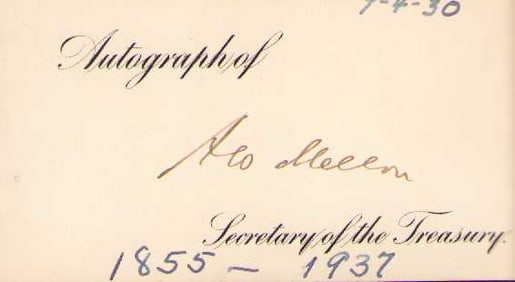 7-4-30
Autograph of
A W Mellon
Secretary of the Treasury.
1855 - 1937